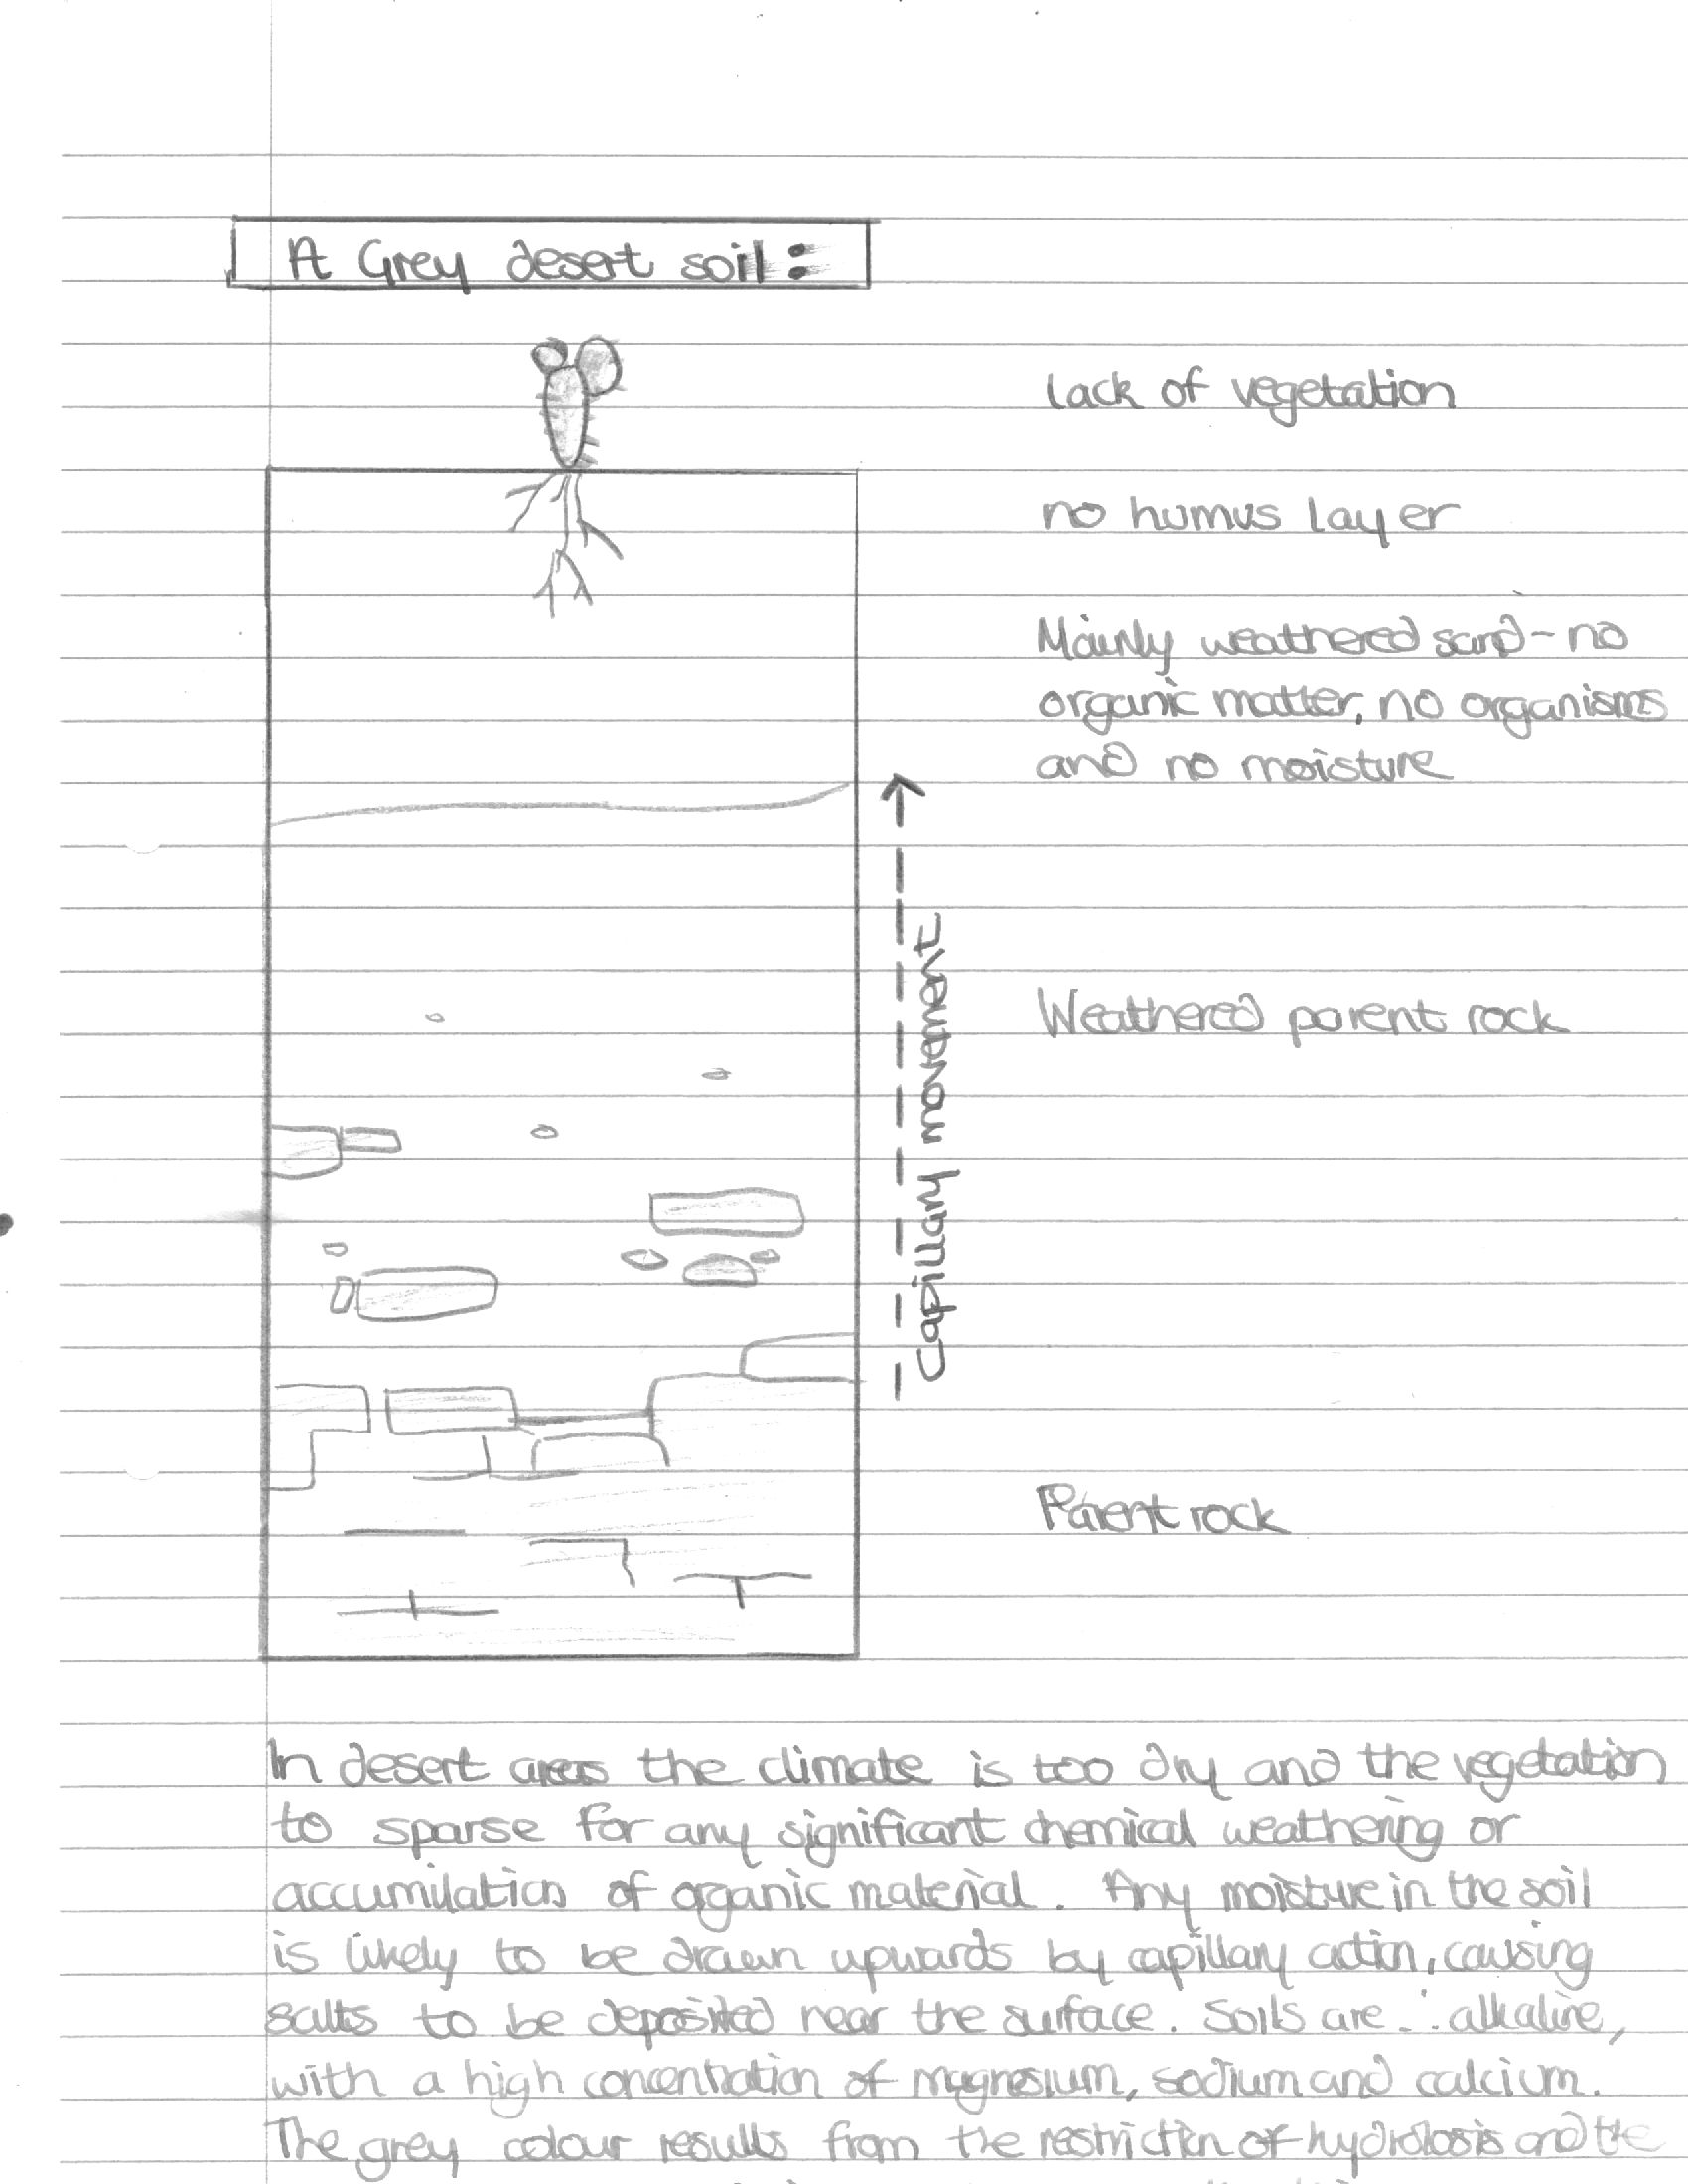 A Grey desert soil:
lack of vegetation
no humus layer
Mainly weathered sand - no
organic matter, no organisms
and no moisture
Capillary movement
Weathered parent rock
Parent rock
In desert areas the climate is too dry and the vegetation
to sparse for any significant chemical weathering or
accumilation of organic material. Any moisture in the soil
is likely to be drawn upwards by capillary action, causing
salts to be deposited near the surface. Soils are ∴ alkaline,
with a high concentration of magnesium, sodium and calcium.
The grey colour results from the restriction of hydrolosis and the